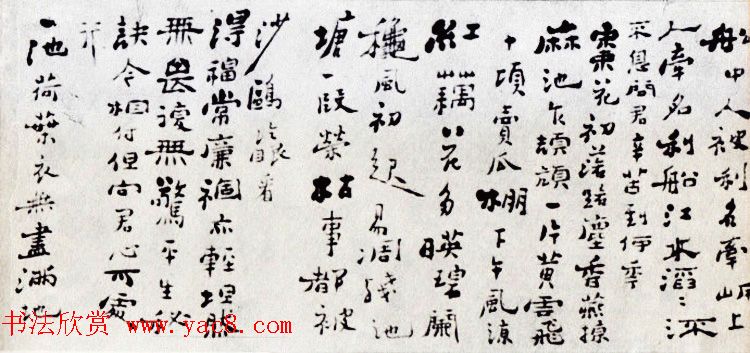 船中人被利名牽岸上
人牽名利船江水滔滔流
不息問君辛苦到何年
棗花初落路塵香燕掠
麻池乍頡頏一片黃雲飛
十頃賣瓜棚下午風涼
紅藕花多映碧闌
穐風初起易凋殘池
塘一段榮枯事都被
沙鷗冷眼看
得福常廉禍亦輕坦然
無畏復無驚平生秘
訣今相付但向君心可處
行
池荷葉衣無盡滿地
书法欣赏 www.yac8.com